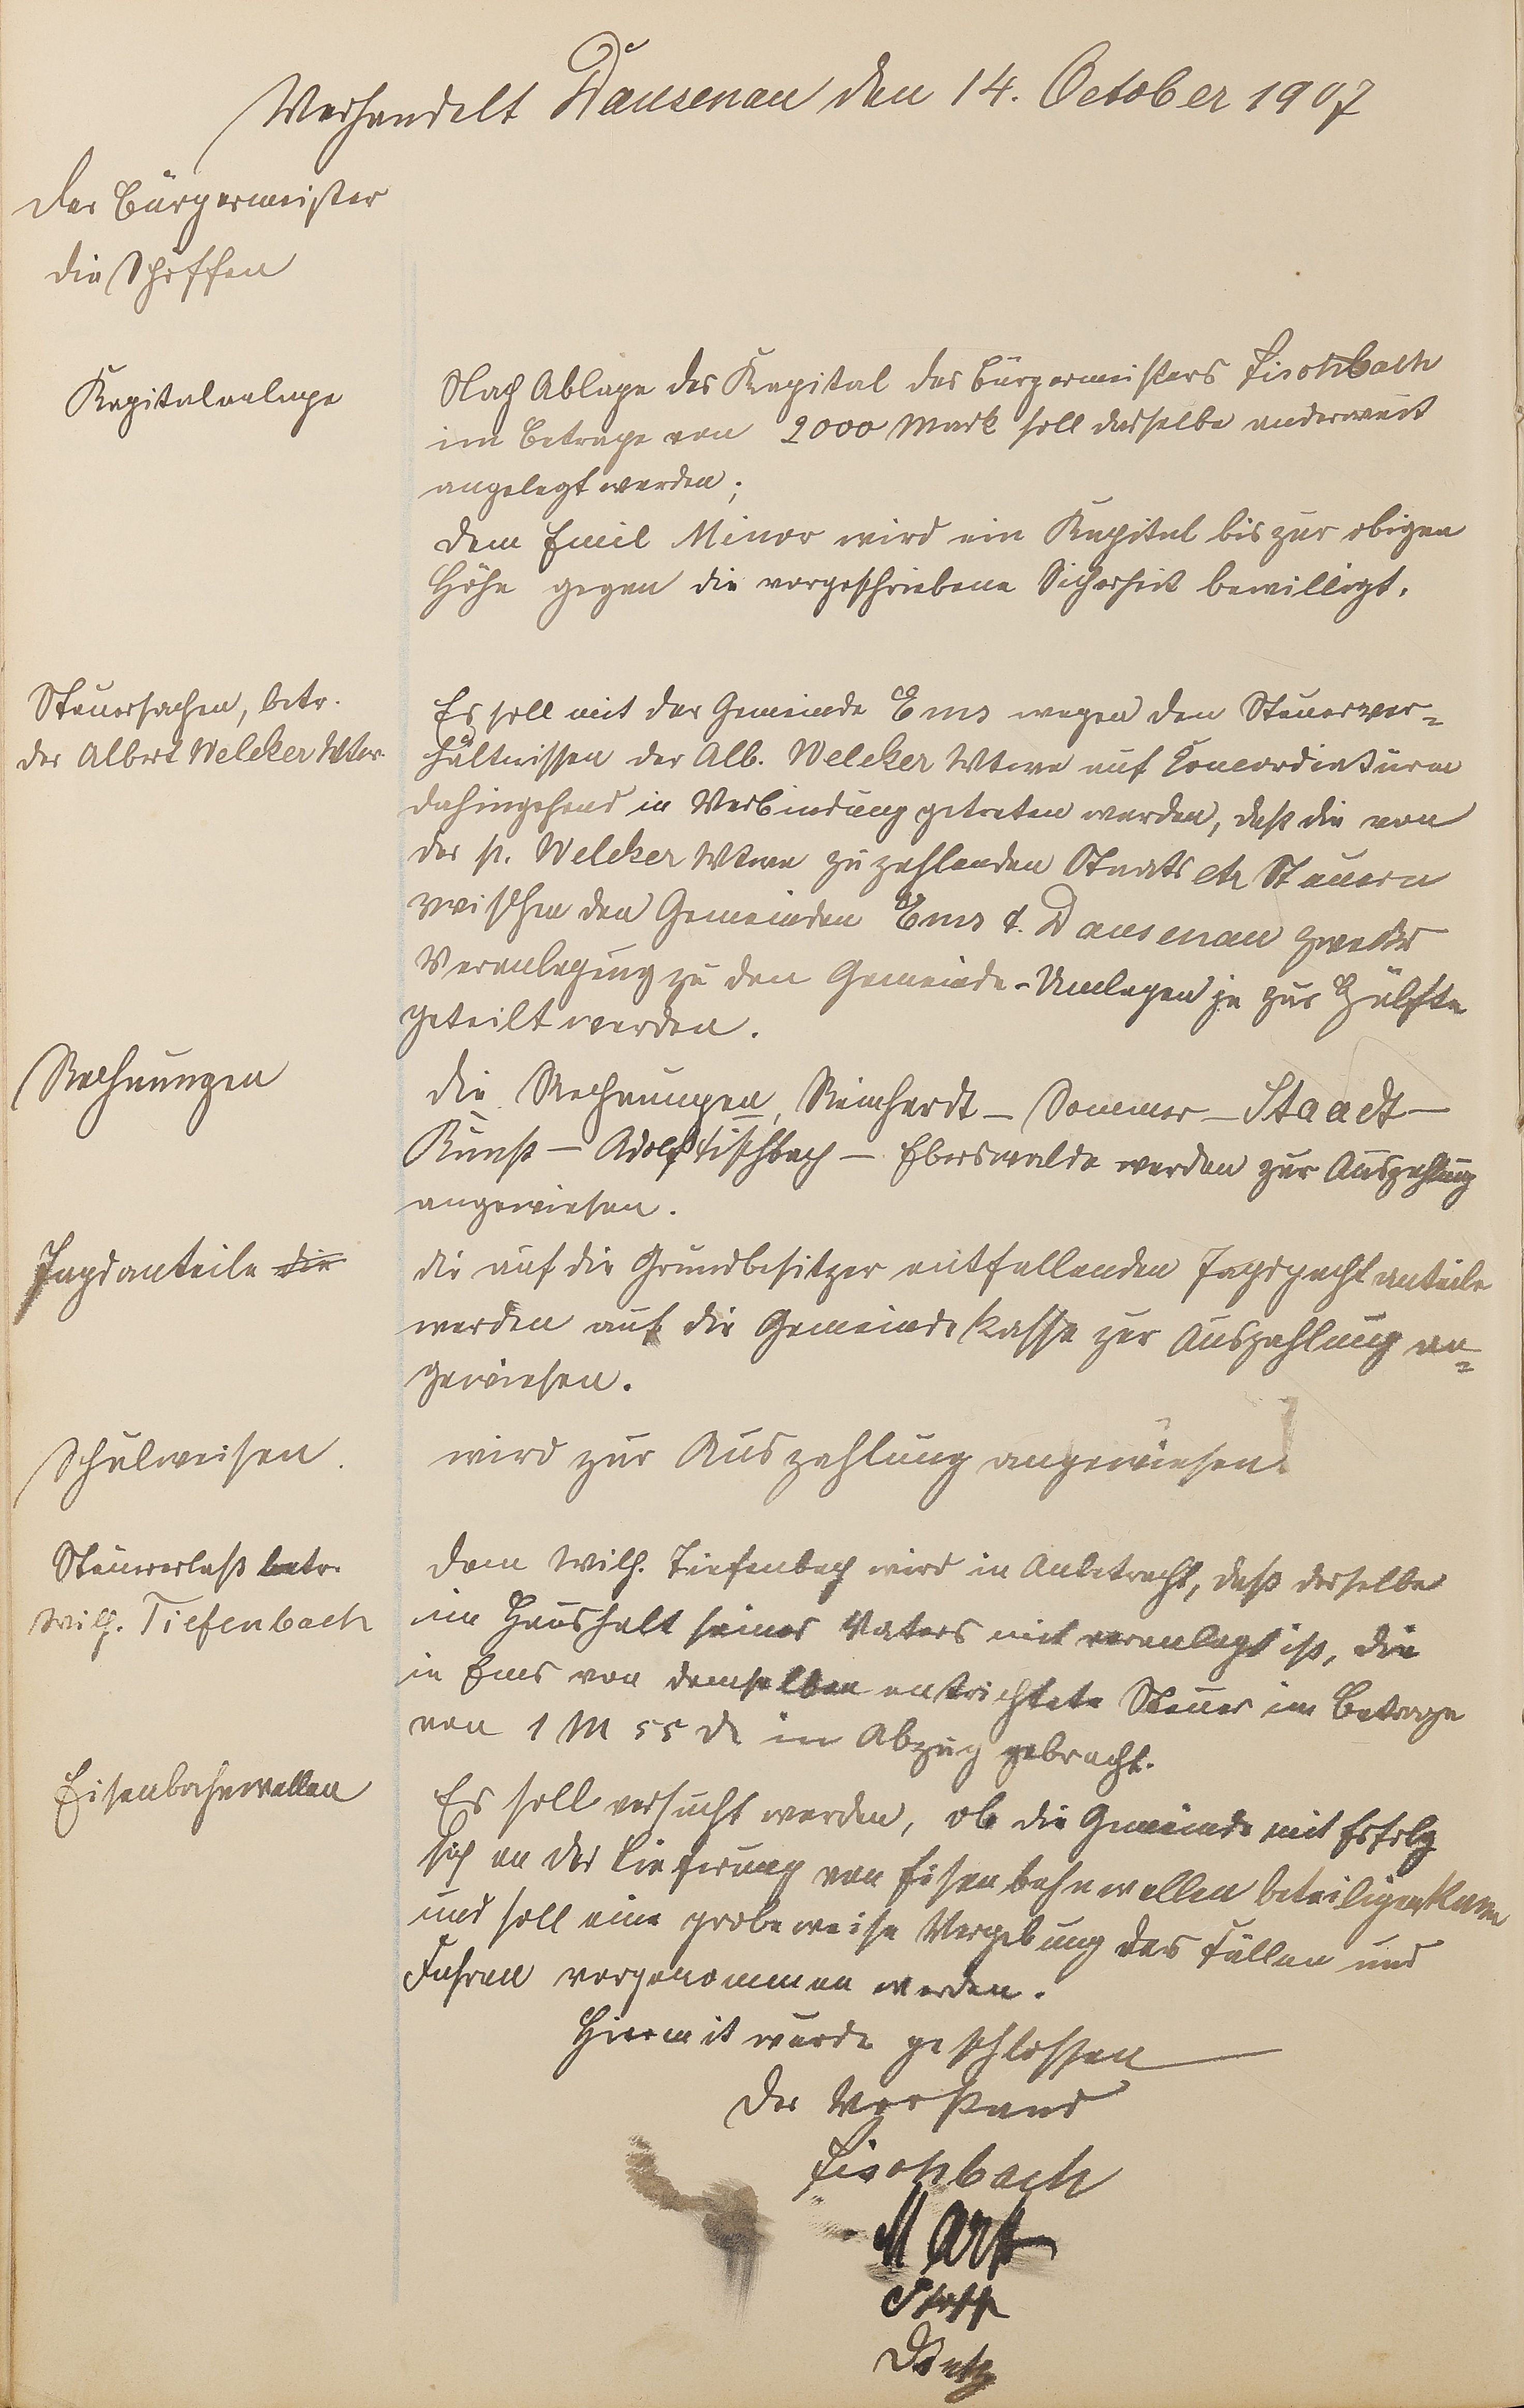 Verhandelt Dausenau den 14. October 1907
Der Bürgermeister
die Schöffen
Kapitalanlage
Nach Ablage des Kapital des Bürgermeisters Fischbach
im Betrage von 2000 Mark soll dasselbe anderweit
angelegt werden;
Dem Emil Minor wird ein Kapital bis zur obigen
Höhe gegen die vorgeschriebene Sicherheit bewilligt.
Steuersachen, betr.
der Albert Welcker Wtw.
Es soll mit der Gemeinde Ems wegen den Steuerver-
hältnissen der Alb. Welcker Wtwe auf Concordiaturm
dahingehend in Verbindung getreten werden, daß die von
der p. Welcker Wtwe zu zahlenden Staats etc Steuern
zwischen den Gemeinden Ems & Dausenau zwecks
Veranlagung zu den Gemeinde-Umlagen je zur Hälfte
geteilt werden.
Rechnungen
die Rechnungen, Reinhardt - Sommer - Staadt -
Kunst - Adolf Fischbach - Eberswalde werden zur Auszahlung
angewiesen.
Jagdanteile die
die auf die Grundbesitzer entfallenden Jagdpachtanteile
werden auf die Gemeindekasse zur Auszahlung an-
gewiesen.
Schulweisen.
wird zur Auszahlung angewiesen.
Steuererlaß betr.
Wilh. Tiefenbach
Dem Wilh. Tiefenbach wird in Anbetracht, daß derselbe
im Haushalt seines Vaters mit veranlagt ist, die
in Ems von demselben entrichtete Steuer im Betrage
von 1 M 55 d in Abzug gebracht.
Eisenbahnwellen
Es soll versucht werden, ob die Gemeinde mit Erfolg
sich an der Lieferung von Eisenbahnwellen beteiligen kann
und soll eine probeweise Vergebung des Fällen und
Fahren vorgenommen werden.
Hiermit wurde geschlossen
Der Vorstand
Fischbach